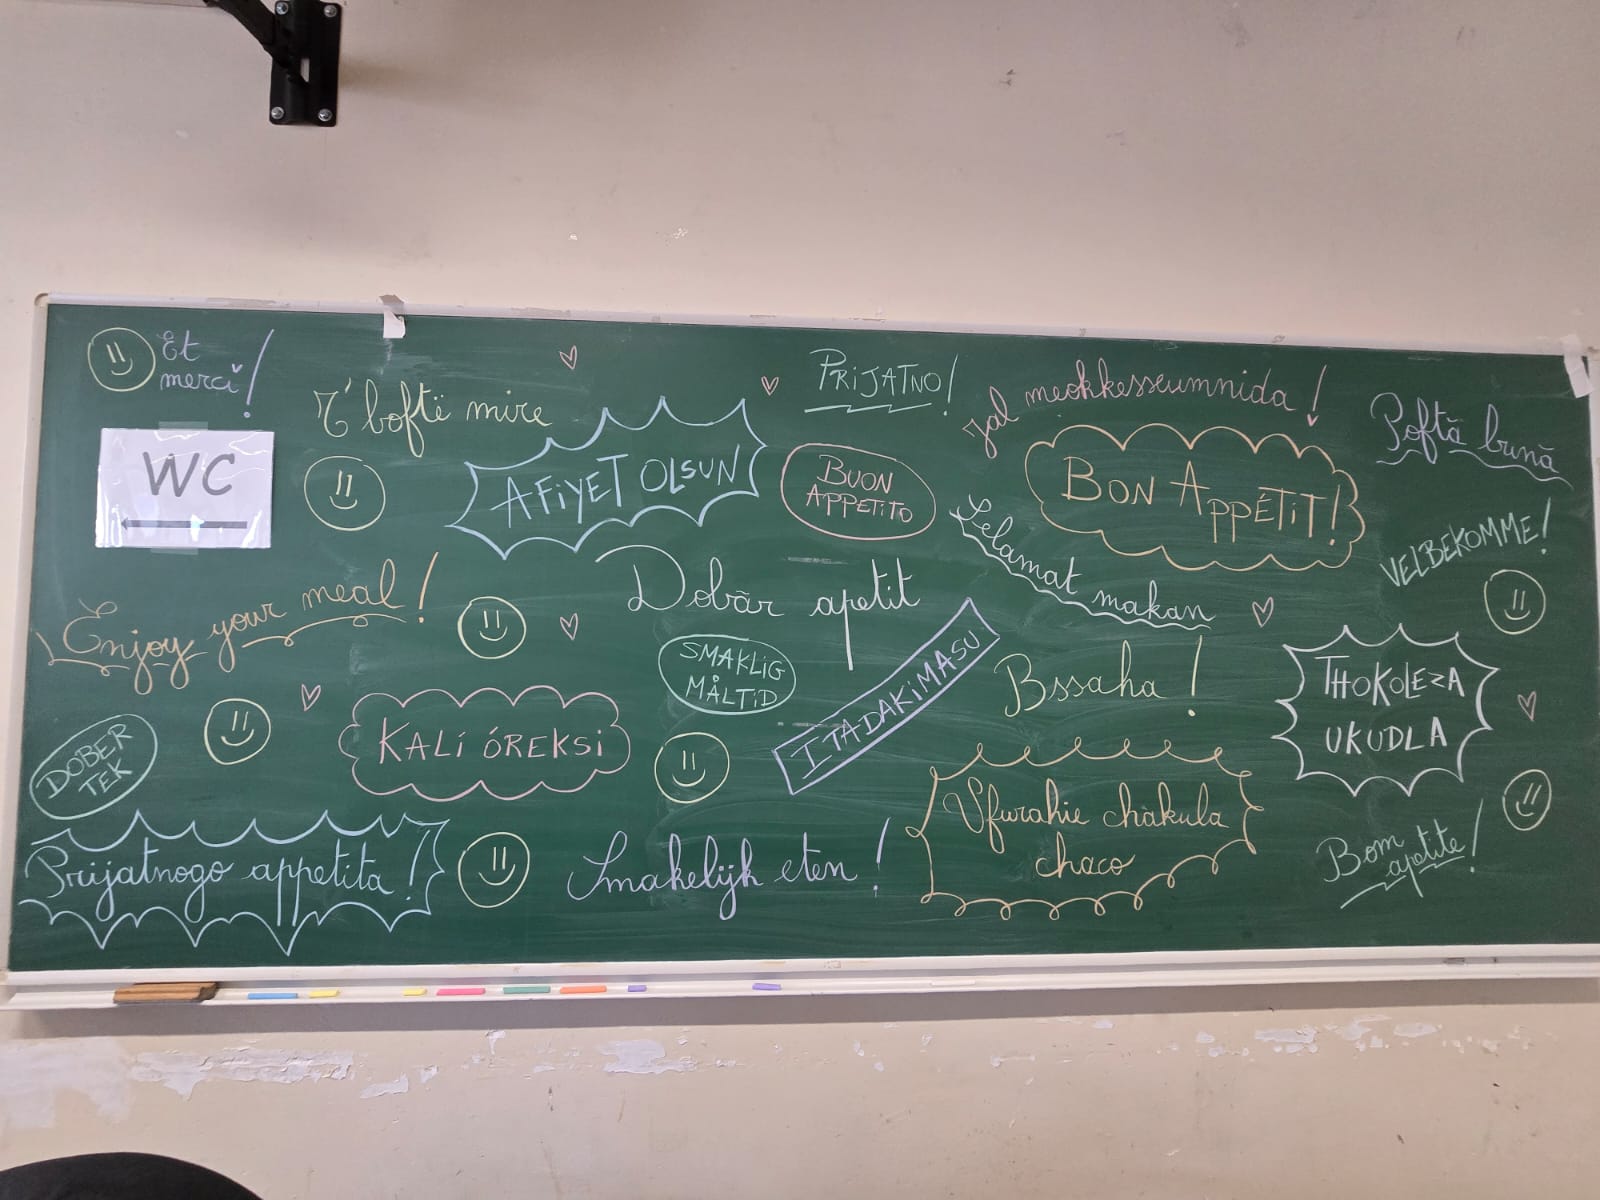 Et
merci !
WC
T' boftë mire
AFIYET OLSUN
PRIJATNO!
BUON
APPETITO
Jal meokkesseumnida !
BON APPÉTIT!
Poftă bună
VELBEKOMME!
Enjoy your meal !
Dobar apetit
Selamat makan
SMAKLIG
MÅLTID
ITADAKIMASU
Bssaha !
THOKOLEZA
UKUDLA
DOBER
TEK
KALÍ ÓREKSI
Prijatnogo appetita !
Smakelijk eten !
Ufurahie chakula
chaco
Bom
apetite!